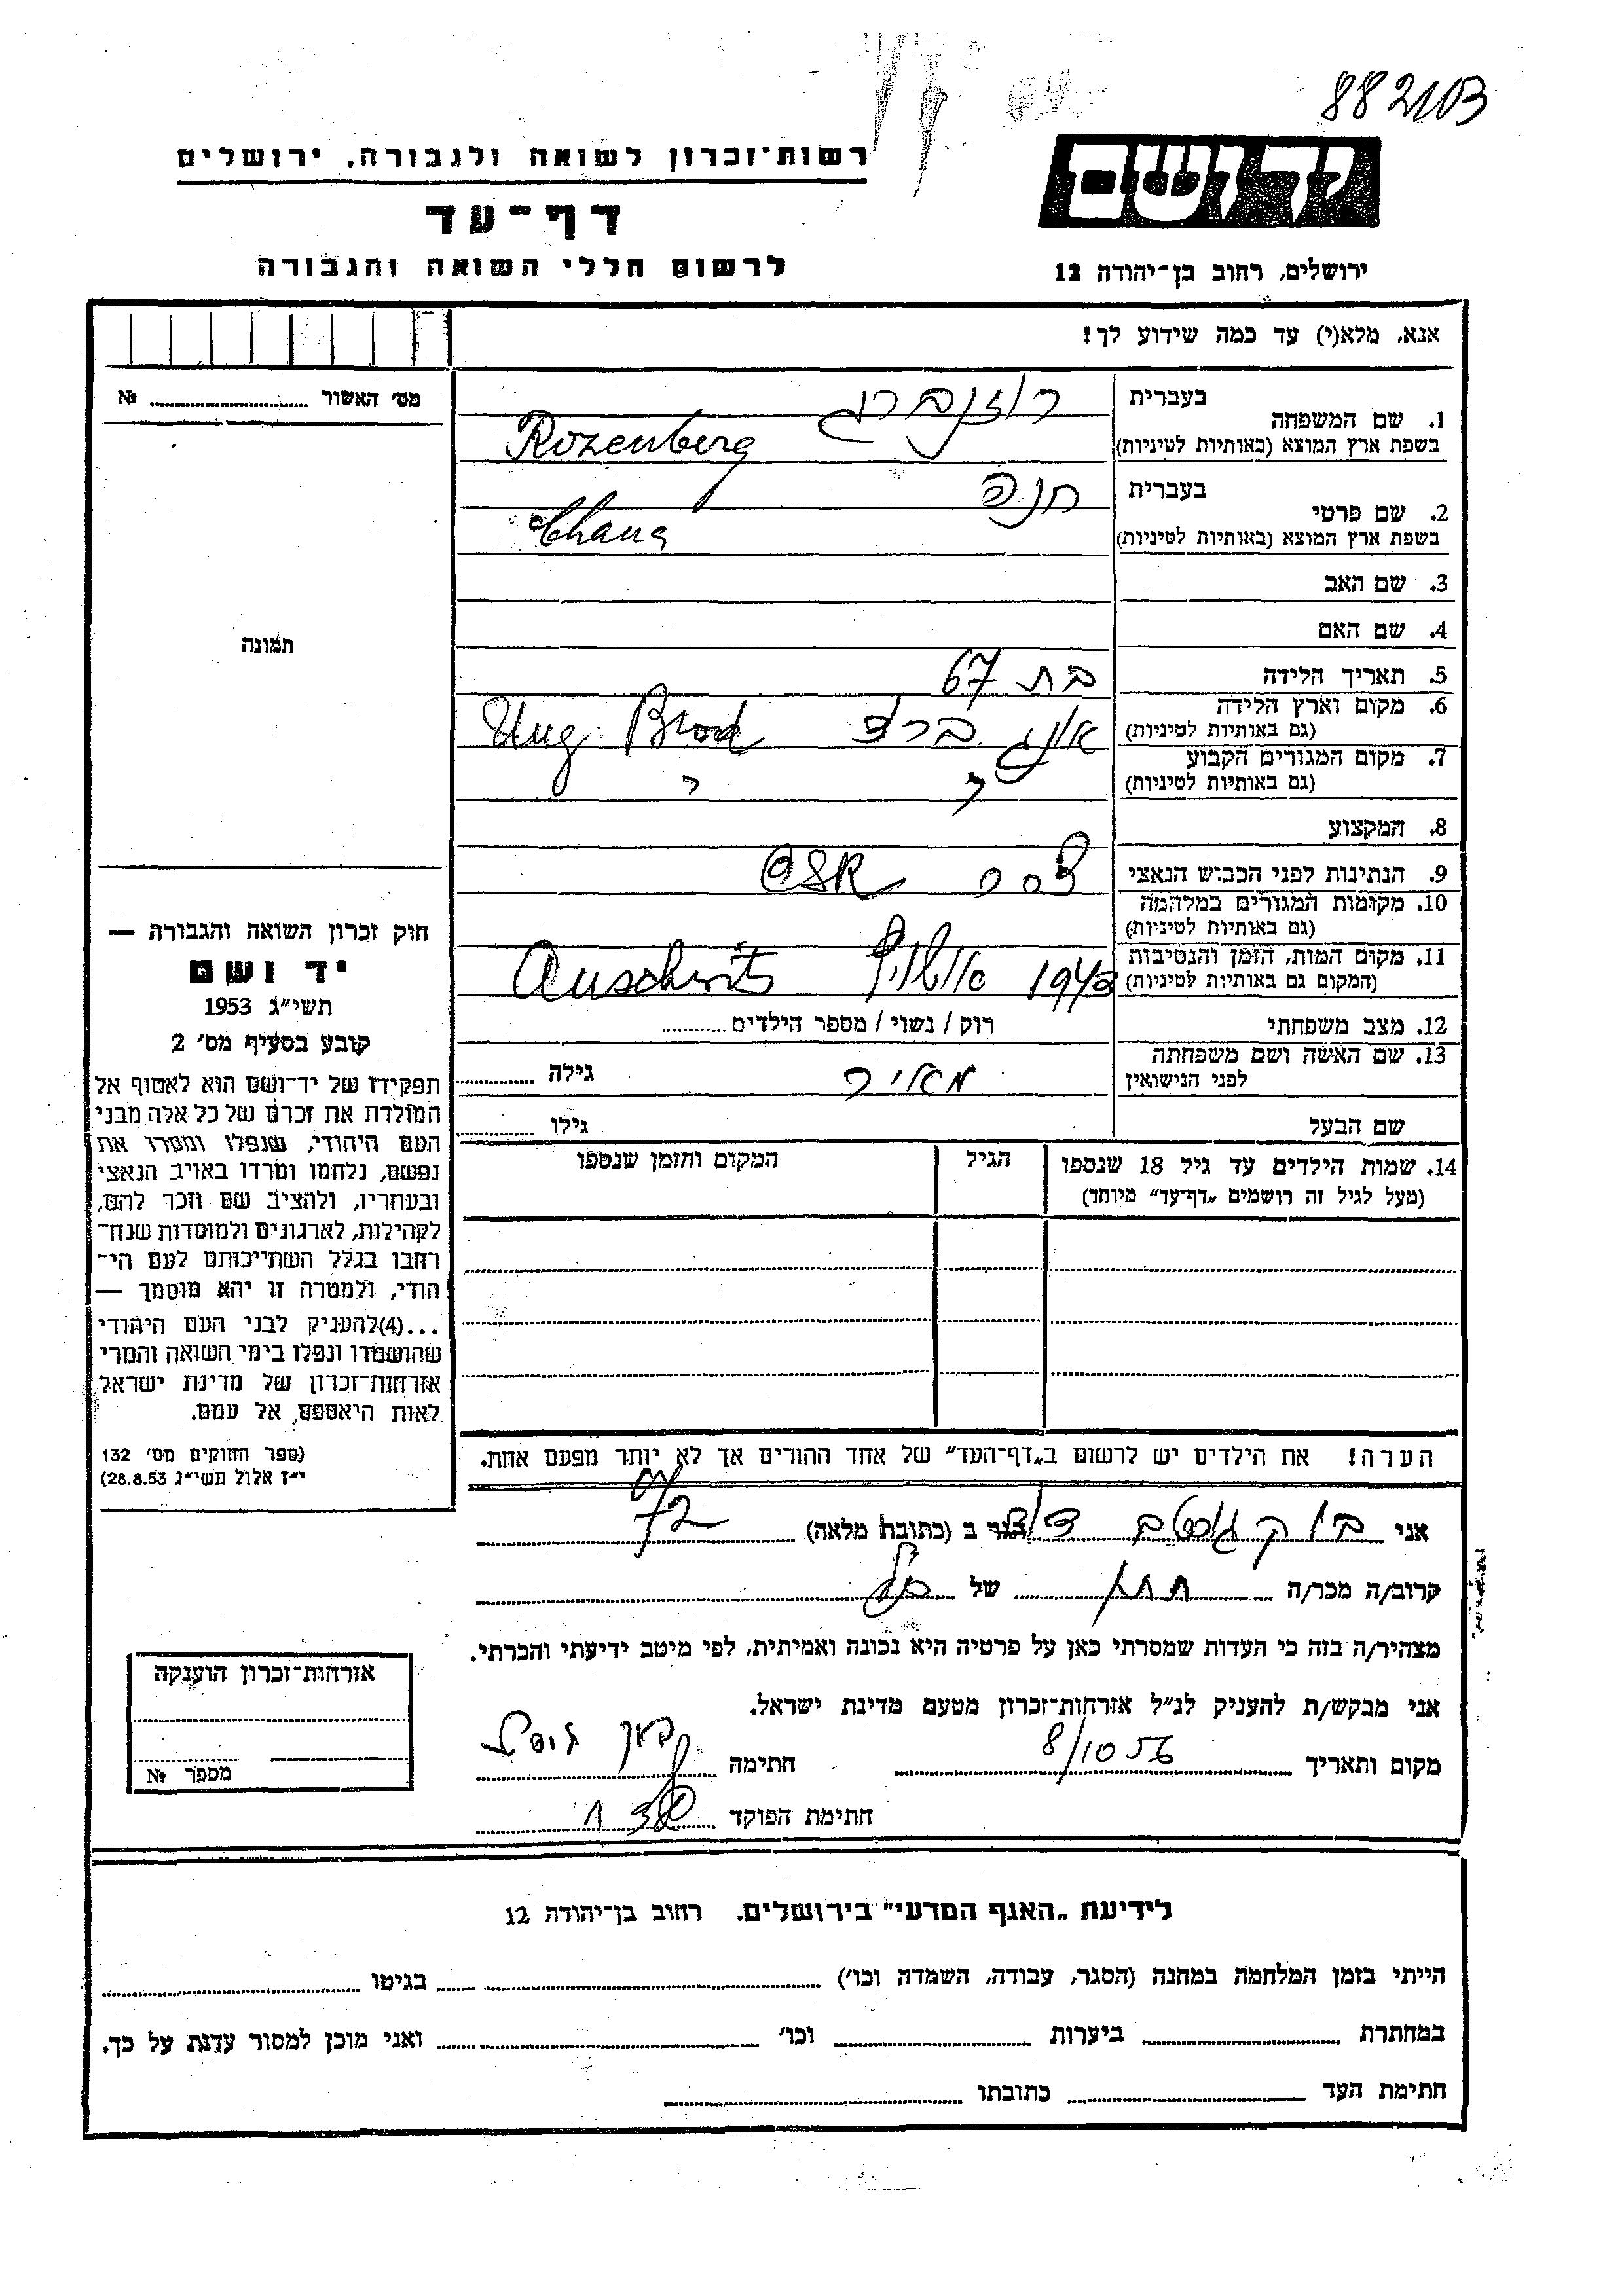 8821B
יד ושם
רשות־זכרון לשואה ולגבורה, ירושלים
דף־עד
לרשום חללי השואה והגבורה
ירושלים, רחוב בן־יהודה 12
אנא, מלא(י) עד כמה שידוע לך!
מס׳ האשור № 
בעברית רוזנברג
1. שם המשפחה
בשפת ארץ המוצא (באותיות לטיניות) Rozenberg
בעברית חנה
2. שם פרטי
בשפת ארץ המוצא (באותיות לטיניות) Chana
3. שם האב
4. שם האם
תמונה
5. תאריך הלידה בת 67
6. מקום וארץ הלידה
(גם באותיות לטיניות) אונג ברוד Ung Brod
7. מקום המגורים הקבוע
(גם באותיות לטיניות) " "
8. המקצוע
9. הנתינות לפני הכבוש הנאצי CSR
10. מקומות המגורים במלחמה
(גם באותיות לטיניות)
11. מקום המות, הזמן והנסיבות
(המקום גם באותיות לטיניות) 1943 אושוויץ Auschwitz
12. מצב משפחתי רוק / נשוי / מספר הילדים
13. שם האשה ושם משפחתה
לפני הנישואין מאיר גילה
שם הבעל גילו
14. שמות הילדים עד גיל 18 שנספו
(מעל לגיל זה רושמים „דף־עד” מיוחד)
הגיל
המקום והזמן שנספו
חוק זכרון השואה והגבורה —
יד ושם
תשי״ג 1953
קובע בסעיף מס׳ 2
תפקידו של יד־ושם הוא לאסוף אל
המולדת את זכרם של כל אלה מבני
העם היהודי, שנפלו ומסרו את
נפשם, נלחמו ומרדו באויב הנאצי
ובעוזריו, ולהציב שם וזכר להם,
לקהילות, לארגונים ולמוסדות שנח־
רבו בגלל השתייכותם לעם הי־
הודי, ולמטרה זו יהא מוסמך —
...(4)להעניק לבני העם היהודי
שהושמדו ונפלו בימי השואה והמרי
אזרחות־זכרון של מדינת ישראל
לאות היאספם אל עמם.
(ספר החוקים מס׳ 132
י״ז אלול תשי״ג 28.8.53)
הערה! את הילדים יש לרשום ב„דף־העד” של אחד ההורים אך לא יותר מפעם אחת.
אני דוד הגר ב (כתובת מלאה)
קרוב/ה מכר/ה חתן של
מצהיר/ה בזה כי העדות שמסרתי כאן על פרטיה היא נכונה ואמיתית, לפי מיטב ידיעתי והכרתי.
אני מבקש/ת להעניק לנ״ל אזרחות־זכרון מטעם מדינת ישראל.
מקום ותאריך 8/10 56 חתימה
חתימת הפוקד
אזרחות־זכרון הוענקה
מספר №
לידיעת „האגף המדעי” בירושלים. רחוב בן־יהודה 12
הייתי בזמן המלחמה במחנה (הסגר, עבודה, השמדה וכו׳) בגיטו
במחתרת ביערות וכו׳ ואני מוכן למסור עדות על כך.
חתימת העד כתובתו